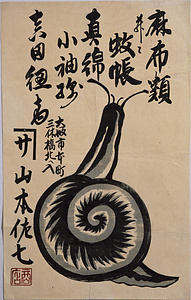 麻布類
并ニ
蚊帳
真綿
小袖
吉田
大阪市本町
三休橋北入
山本佐七